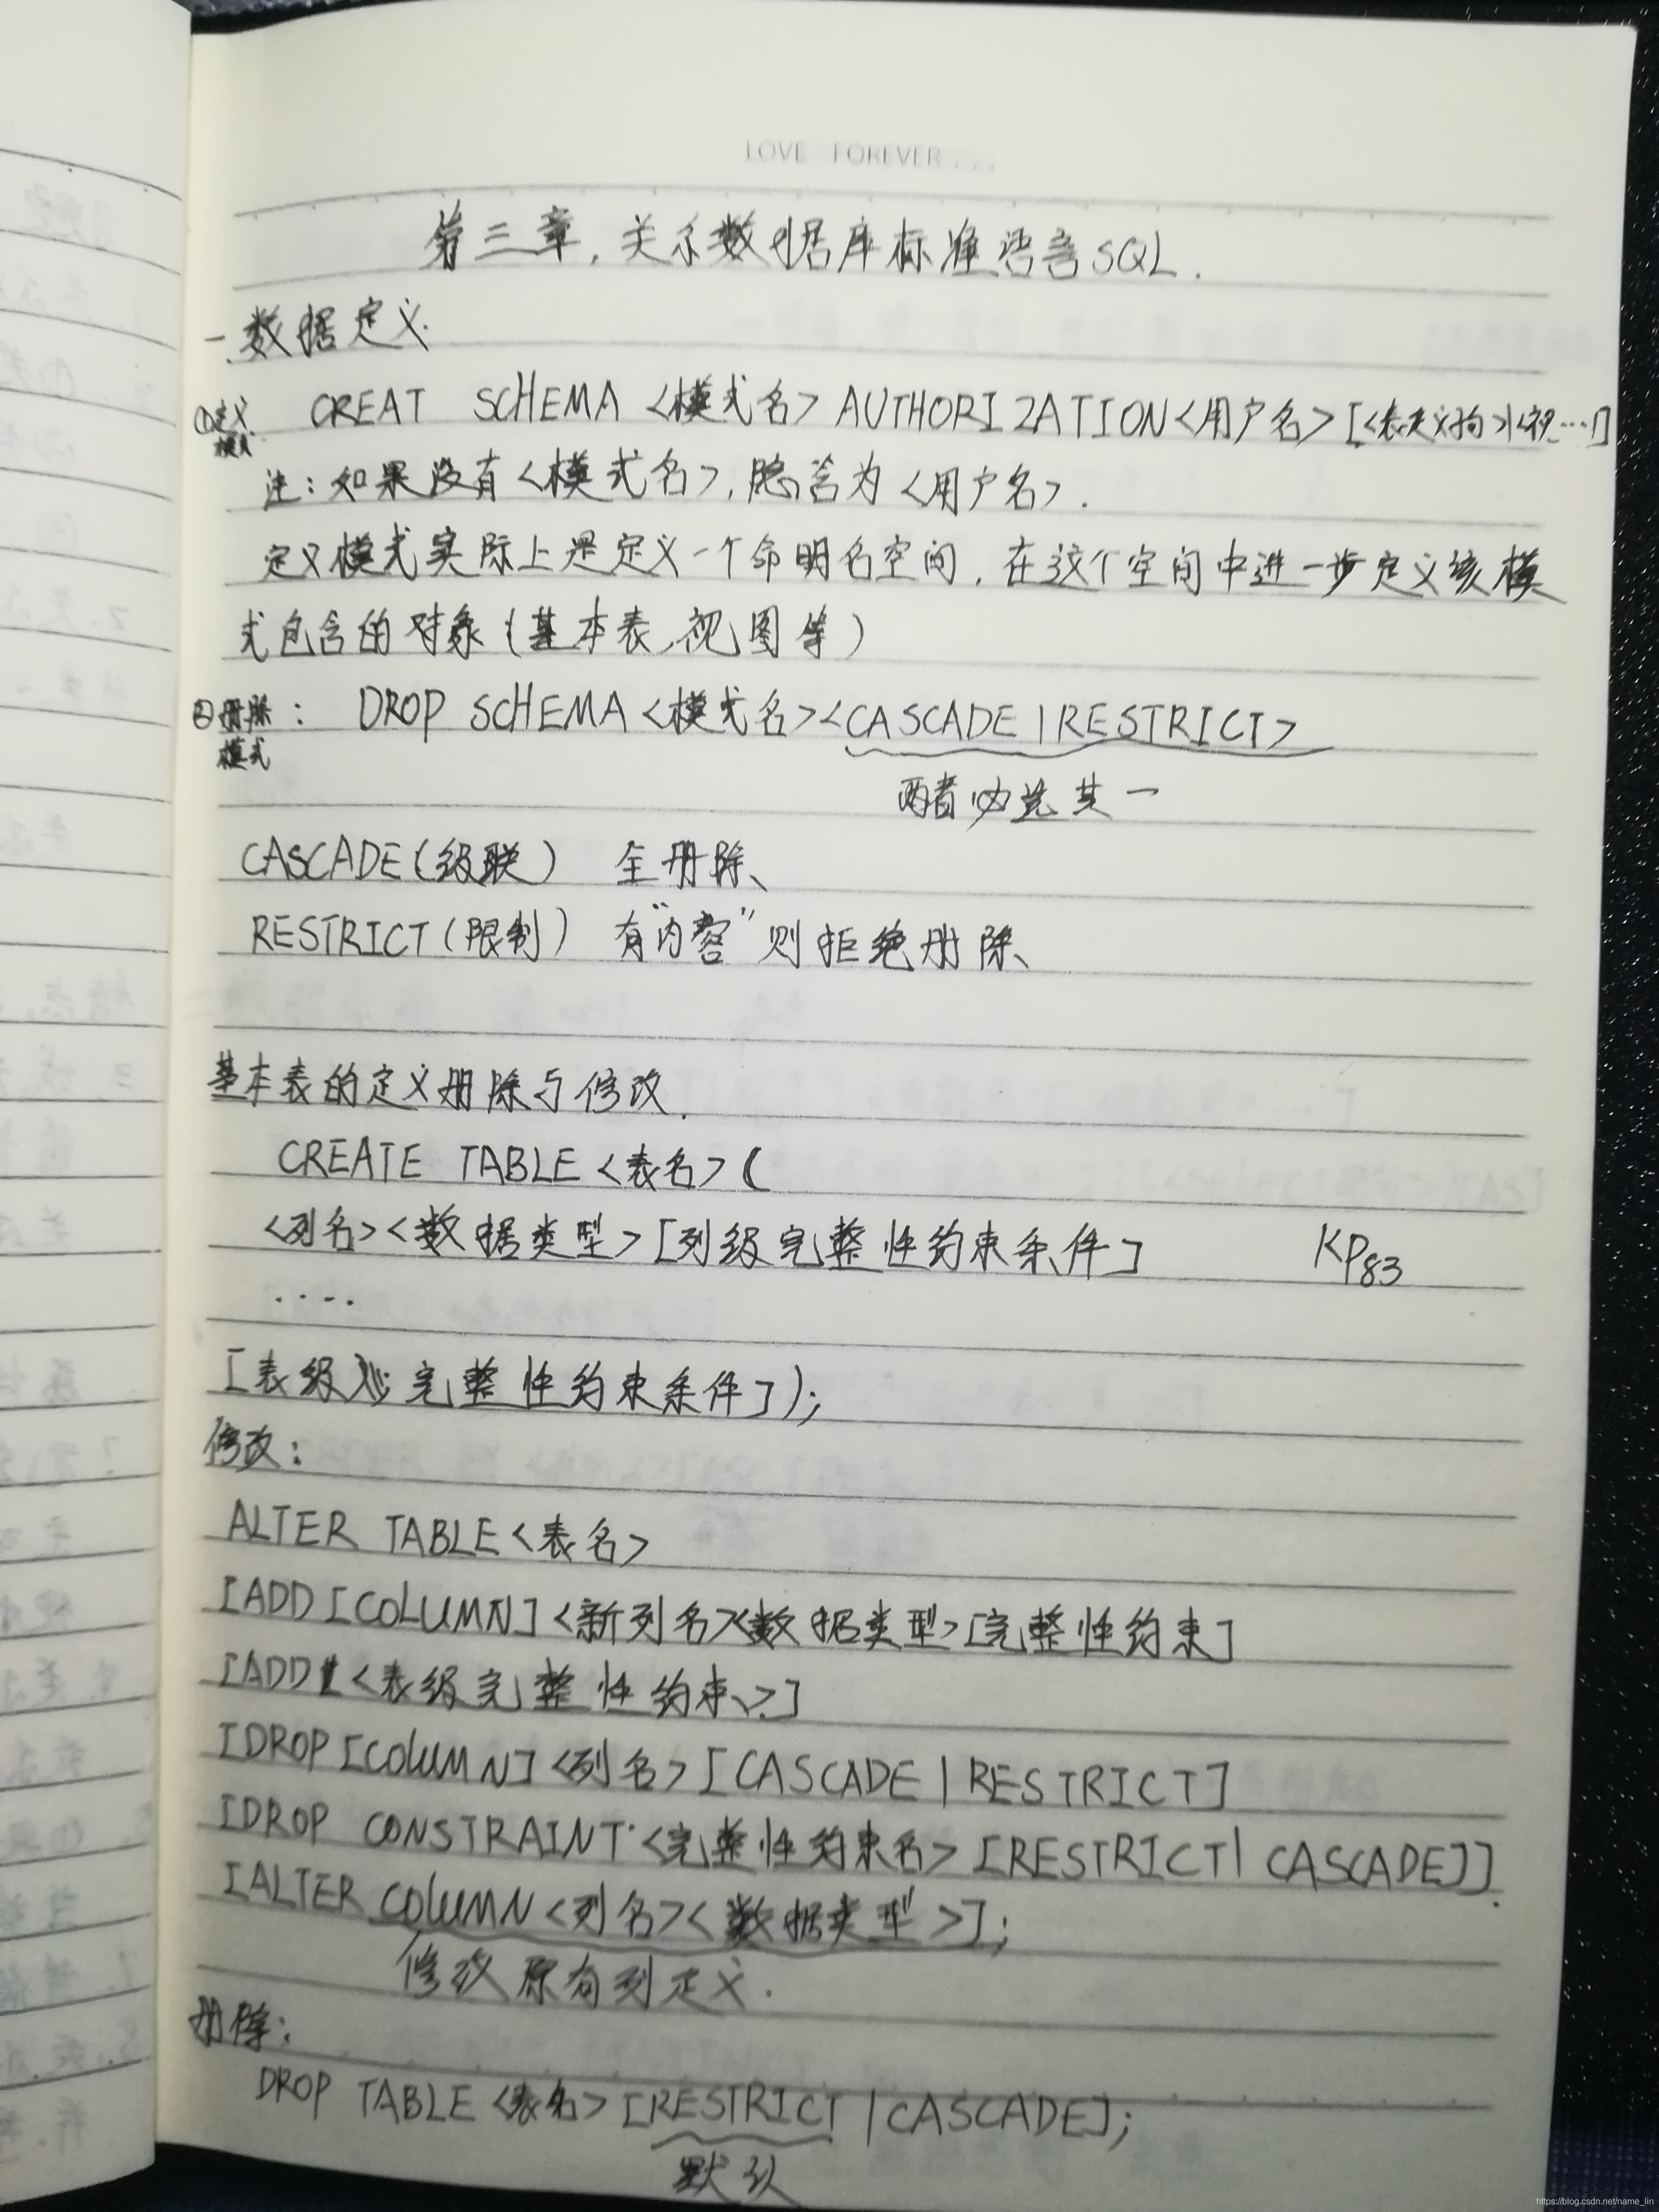 LOVE FOREVER . . .
第三章,关系数据库标准语言SQL.
一.数据定义.
①定义 CREAT SCHEMA <模式名> AUTHORIZATION<用户名>[<表定义子句>|<视…]
模式
注:如果没有<模式名>,隐含为<用户名>.
定义模式实际上是定义一个命明名空间,在这个空间中进一步定义该模
式包含的对象(基本表、视图等)
②删除: DROP SCHEMA <模式名><CASCADE | RESTRICT>
模式
两者必选其一
CASCADE(级联) 全删除、
RESTRICT(限制) 有"内容"则拒绝删除、
基本表的定义删除与修改.
CREATE TABLE <表名>(
<列名><数据类型>[列级完整性约束条件] KP83
....
[表级 完整性约束条件]);
修改:
ALTER TABLE<表名>
[ADD[COLUMN]<新列名><数据类型>[完整性约束]
[ADD <表级完整性约束>]
[DROP[COLUMN]<列名>[CASCADE | RESTRICT]
[DROP CONSTRAINT<完整性约束名>[RESTRICT| CASCADE]].
[ALTER COLUMN<列名><数据类型>];
修改原有列定义.
删除:
DROP TABLE <表名>[RESTRICT | CASCADE];
默认
https://blog.csdn.net/name_lin